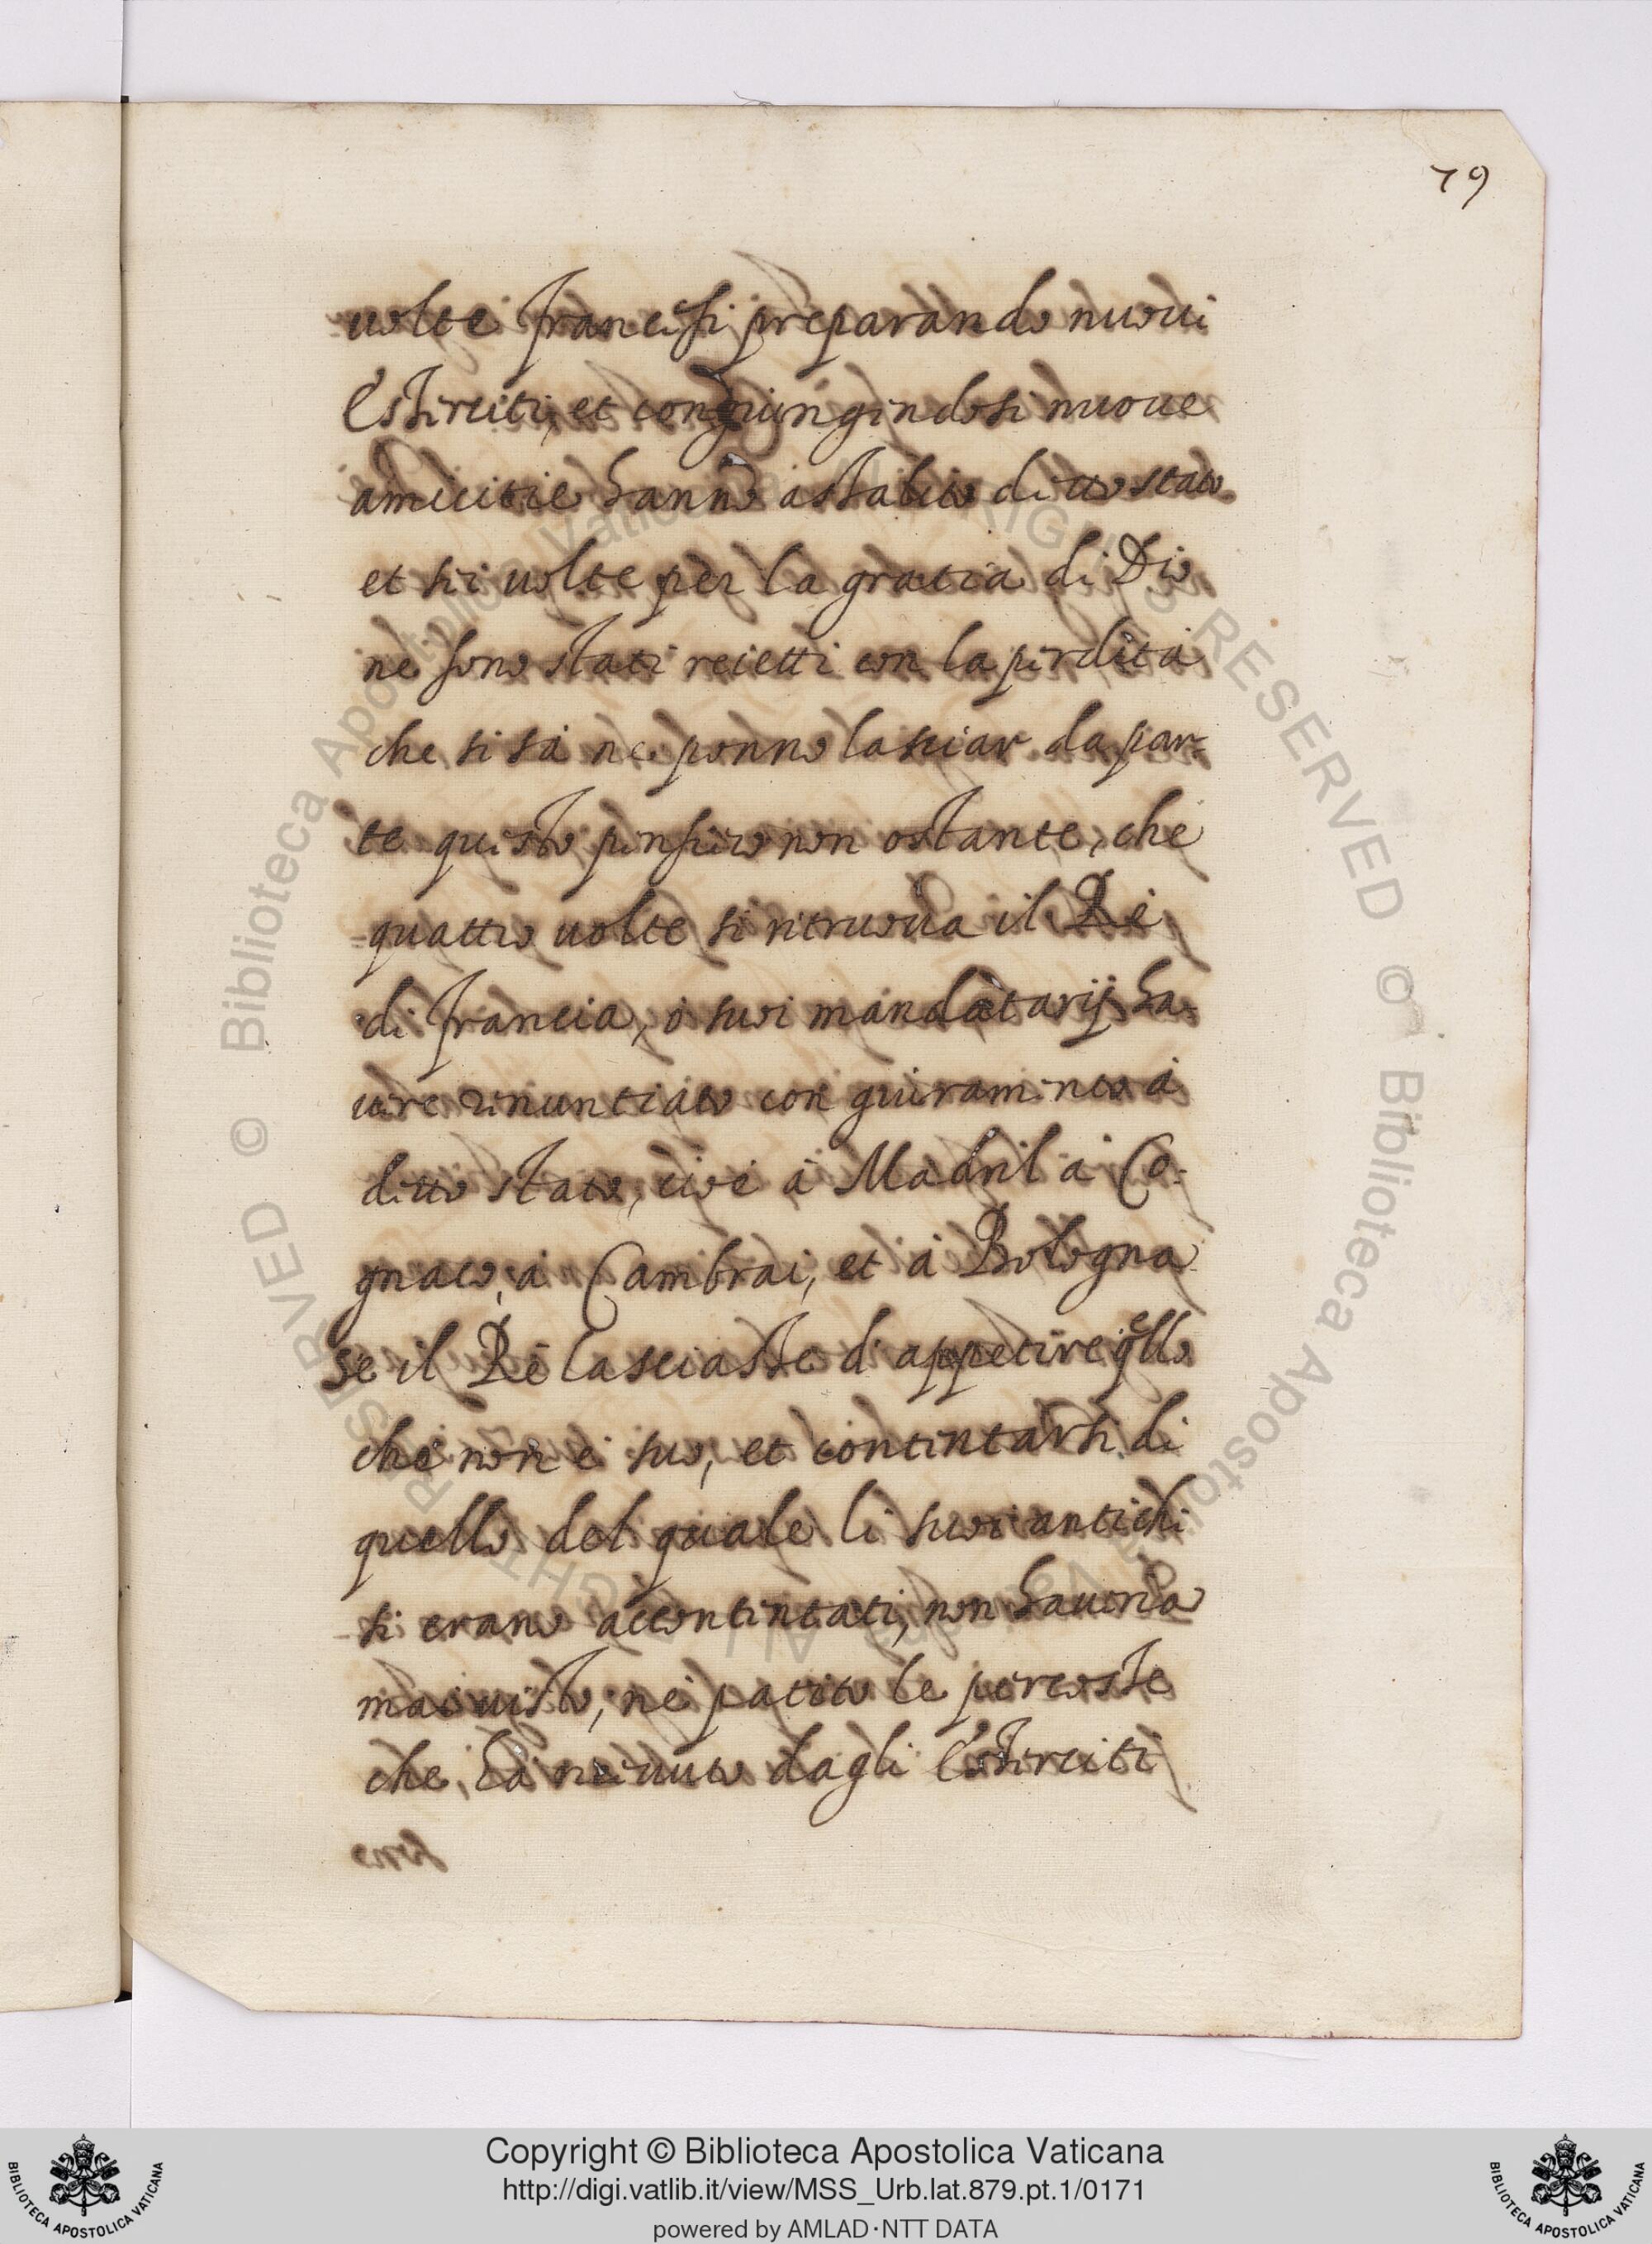 79
uolte francesi preparando nuoui
Esserciti, et congiungendosi nuoue
amicitie hanno assalito ditto stato
et sei uolte per la gratia di Dio
ne sono stati reietti con la perdita
che si sà ne ponno lasciar da par=
te questo pensiero non ostante, che
quattro uolte si ritruoua il Rè
di francia, ò suoi mandatarij ha-
uere rinuntiato con giuramento à
ditto stato, cioè à Madril à Co-
gnaco, à Cambrai, et à Bologna
se il Rè lasciasse di appetire q̃llo
che non è suo, et contentarsi di
quello del quale li suoi antichi
si erano accontentati, non haueria
mai uisto, nè patito le percosse
che hà riceuuto dagli Esserciti
© Biblioteca Apostolica Vaticana ALL RIGHTS RESERVED
© Biblioteca Apostolica Vaticana ALL RIGHTS RESERVED
Copyright © Biblioteca Apostolica Vaticana
http://digi.vatlib.it/view/MSS_Urb.lat.879.pt.1/0171
powered by AMLAD·NTT DATA
BIBLIOTECA APOSTOLICA VATICANA
BIBLIOTECA APOSTOLICA VATICANA